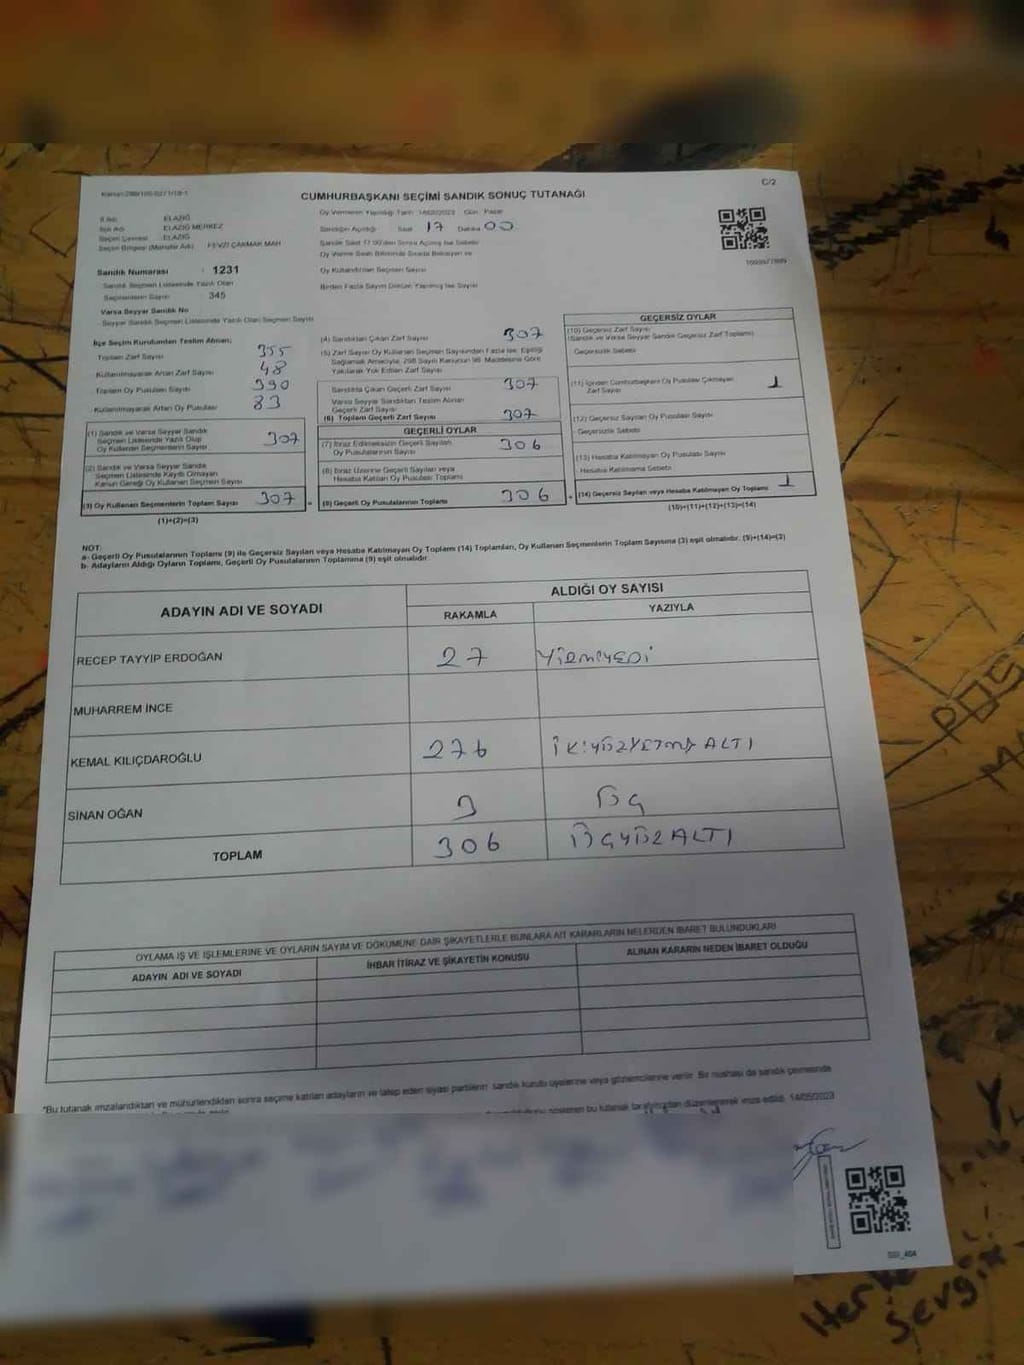 CUMHURBAŞKANI SEÇİMİ SANDIK SONUÇ TUTANAĞI
C/2
İl Adı ELAZIĞ
İlçe Adı ELAZIĞ MERKEZ
Seçim Çevresi ELAZIĞ
Seçim Bölgesi (Muhtarlık Adı) FEVZİ ÇAKMAK MAH
Oy Vermenin Yapıldığı Tarih 14/05/2023 Gün Pazar
Sandığın Açıldığı Saat 17 Dakika 00
Oy Kullandırılan Seçmen Sayısı
Birden Fazla Sayım Döküm Yapılmış İse Sayısı
Sandık Numarası : 1231
Sandık Seçmen Listesinde Yazılı Olan
Seçmenlerin Sayısı 345
Varsa Seyyar Sandık No
Seyyar Sandık Seçmen Listesinde Yazılı Olan Seçmen Sayısı
İlçe Seçim Kurulundan Teslim Alınan;
Toplam Zarf Sayısı 355
Kullanılmayarak Artan Zarf Sayısı 48
Toplam Oy Pusulası Sayısı 390
Kullanılmayarak Artan Oy Pusulası 83
(1) Sandık ve Varsa Seyyar Sandık
Seçmen Listesinde Yazılı Olup
Oy Kullanan Seçmenlerin Sayısı 307
(2) Sandık ve Varsa Seyyar Sandık
Seçmen Listesinde Kayıtlı Olmayan
Kanun Gereği Oy Kullanan Seçmen Sayısı
(3) Oy Kullanan Seçmenlerin Toplam Sayısı 307 =
(1)+(2)=(3)
(4) Sandıktan Çıkan Zarf Sayısı 307
(5) Zarf Sayısı Oy Kullanan Seçmen Sayısından Fazla İse, Eşitliği
Sağlamak Amacıyla, 298 Sayılı Kanunun 98. Maddesine Göre
Yakılarak Yok Edilen Zarf Sayısı
Sandıkta Çıkan Geçerli Zarf Sayısı 307
Varsa Seyyar Sandıktan Teslim Alınan
Geçerli Zarf Sayısı
(6) Toplam Geçerli Zarf Sayısı 307
GEÇERLİ OYLAR
(7) İtiraz Edilmeksizin Geçerli Sayılan
Oy Pusulalarının Sayısı 306
(8) İtiraz Üzerine Geçerli Sayılan veya
Hesaba Katılan Oy Pusulası Toplamı
(9) Geçerli Oy Pusulalarının Toplamı 306 +
GEÇERSİZ OYLAR
(10) Geçersiz Zarf Sayısı
(Sandık ve Varsa Seyyar Sandık Geçersiz Zarf Toplamı)
Geçersizlik Sebebi
(11) İçinden Cumhurbaşkanı Oy Pusulası Çıkmayan
Zarf Sayısı 1
(12) Geçersiz Sayılan Oy Pusulası Sayısı
Geçersizlik Sebebi
(13) Hesaba Katılmayan Oy Pusulası Sayısı
Hesaba Katılmama Sebebi
(14) Geçersiz Sayılan veya Hesaba Katılmayan Oy Toplamı 1
(10)+(11)+(12)+(13)=(14)
NOT:
a- Geçerli Oy Pusulalarının Toplamı (9) ile Geçersiz Sayılan veya Hesaba Katılmayan Oy Toplamı (14) Toplamları, Oy Kullanan Seçmenlerin Toplam Sayısına (3) eşit olmalıdır. (9)+(14)=(3)
b- Adayların Aldığı Oyların Toplamı, Geçerli Oy Pusulalarının Toplamına (9) eşit olmalıdır.
ADAYIN ADI VE SOYADI
ALDIĞI OY SAYISI
RAKAMLA YAZIYLA
RECEP TAYYIP ERDOĞAN 27 YİRMİYEDİ
MUHARREM İNCE
KEMAL KILIÇDAROĞLU 276 İKİYÜZYETMİŞ ALTI
SİNAN OĞAN 3 ÜÇ
TOPLAM 306 ÜÇYÜZALTI
OYLAMA İŞ VE İŞLEMLERİNE VE OYLARIN SAYIM VE DÖKÜMÜNE DAİR ŞİKAYETLERLE BUNLARA AİT KARARLARIN NELERDEN İBARET BULUNDUKLARI
ADAYIN ADI VE SOYADI İHBAR İTİRAZ VE ŞİKAYETİN KONUSU ALINAN KARARIN NEDEN İBARET OLDUĞU
*Bu tutanak imzalandıktan ve mühürlendikten sonra seçime katılan adayların ve talep eden siyasi partilerin sandık kurulu üyelerine veya gözlemcilerine verilir. Bir nüshası da sandık çevresinde
bu tutanak tarafımızdan düzenlenerek imza edildi. 14/05/2023